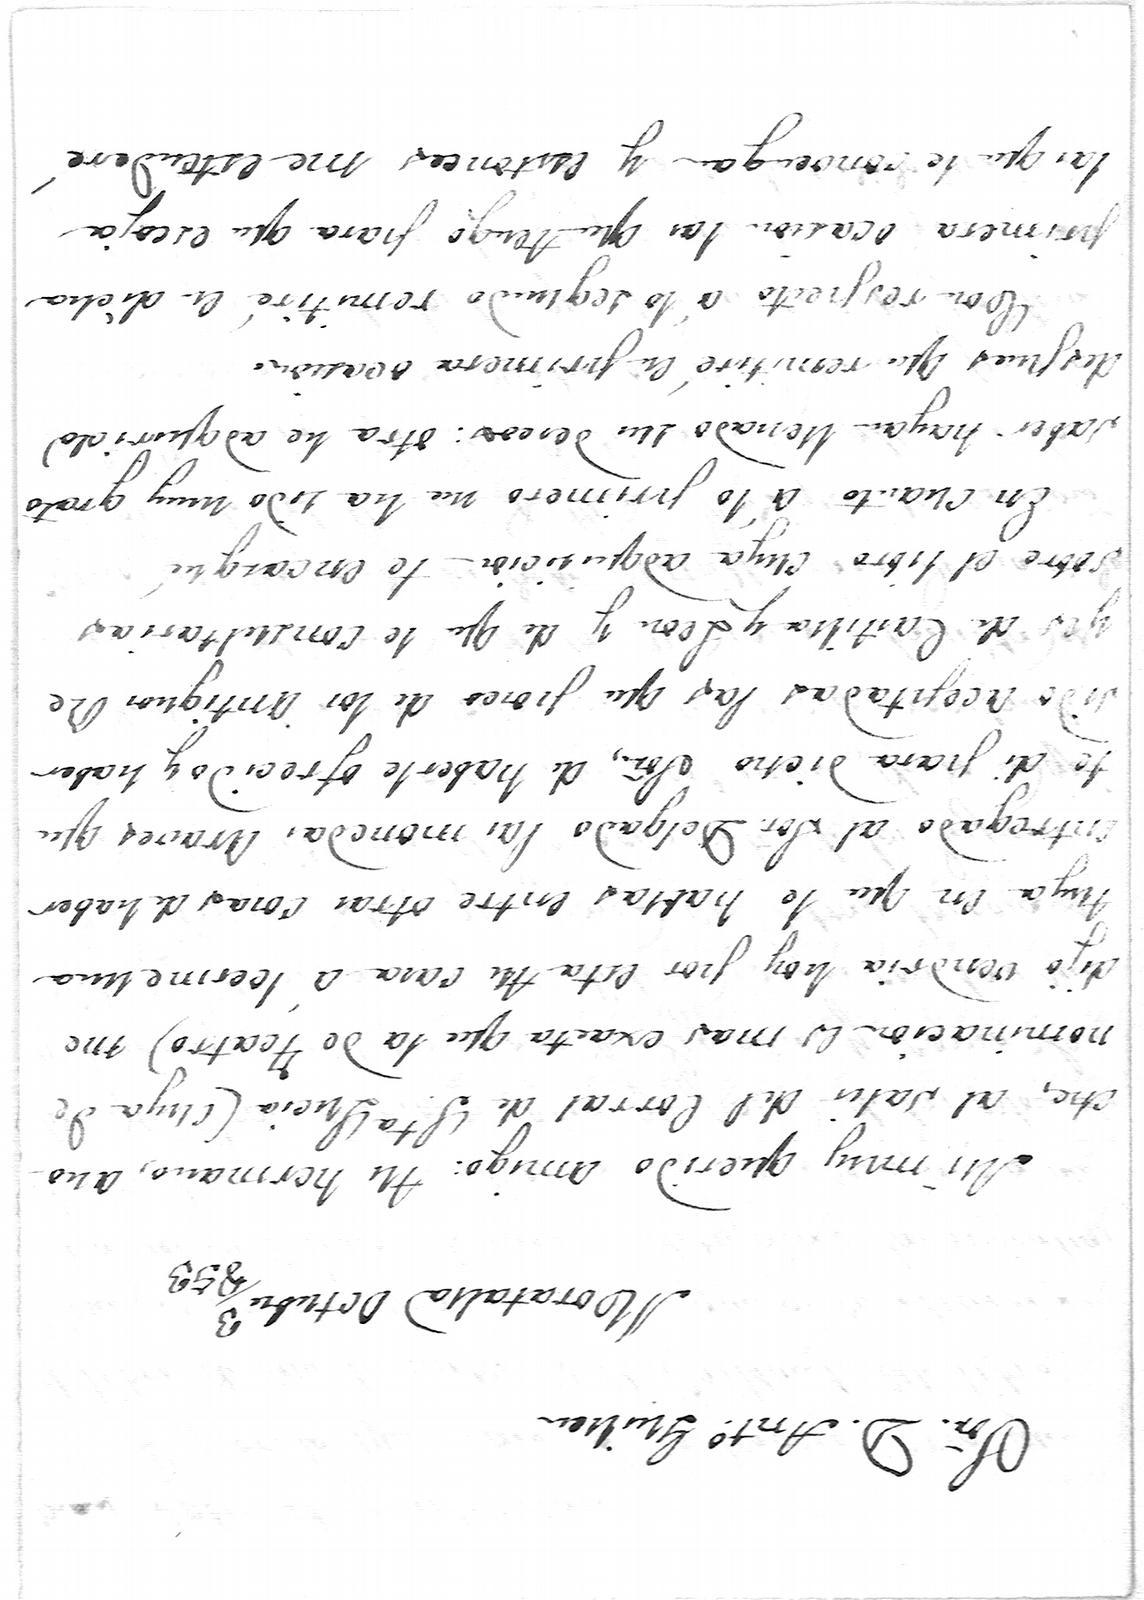 Sr. D. Anto. Guillen
Moratalla Octubre 3
/853
Mi muy querido amigo: tu hermano, ano-
che, al salir del Corral de Sta Lucia (cuya de
nominacion es mas exacta que la de Teatro) me
dijo vendria hoy por esta tu casa á leerme una
tuya en que le hablas entre otras cosas de haber
entregado al Sor. Delgado las monedas Arabes que
te di para dicho Sor, de haberle ofrecido y haber
sido aceptadas las que poseo de los antiguos Re
yes de Castilla y Leon y de que le consultarias
sobre el libro cuya adquisicion te encargué
En cuanto á lo primero me ha sido muy grato
saber hayan llenado su deseo: otra he adquirido
despues que remitiré en primera ocasion.
Con respeto á lo segundo remitiré en dicha
primera ocasion las que tengo para que escoja
las que le convengan y entonces me estenderé